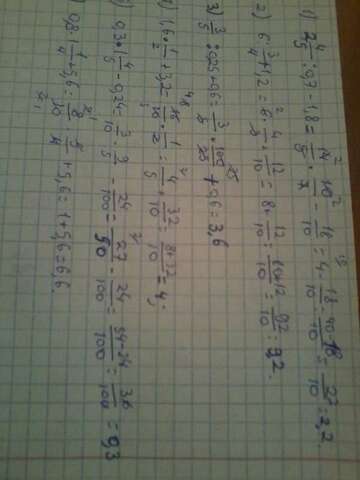 1) 2 4/5 : 0,7 - 1,8 = 14/5 · 10/7 - 18/10 = 4 - 18/10 = 40-18/10 = 22/10 = 2,2.
2) 6 : 3/4 + 1,2 = 6 · 4/3 + 12/10 = 8 + 12/10 = 80+12/10 = 92/10 = 9,2
3) 3/5 : 0,25 + 0,6 = 3/5 · 100/25 + 0,6 = 3,6
) 1,6 · 1/2 + 3,2 = 16/10 · 1/2 = 4/5 + 32/10 = 8+32/10 = 4;
) 0,3 · 1 4/5 - 0,24 = 3/10 · 9/5 - 24/100 = 27/50 - 24/100 = 54-24/100 = 30/100 = 0,3
) 0,8 · 1 1/4 + 5,6 = 8/10 · 5/4 + 5,6 = 1 + 5,6 = 6,6.